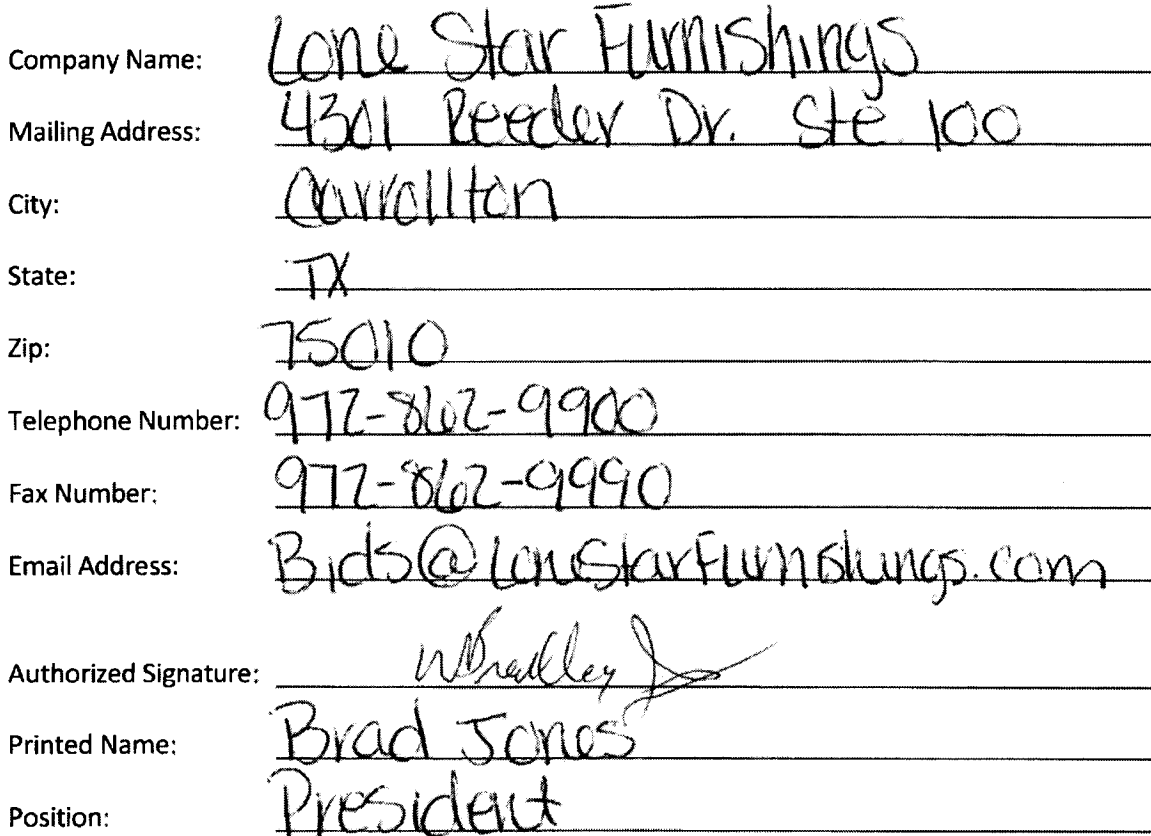 Company Name: Lone Star Furnishings
Mailing Address: 4301 Reeder Dr. Ste 100
City: Carrollton
State: TX
Zip: 75010
Telephone Number: 972-862-9900
Fax Number: 972-862-9990
Email Address: Bids@LoneStarFurnishings.com
Authorized Signature: WBradley
Printed Name: Brad Jones
Position: President